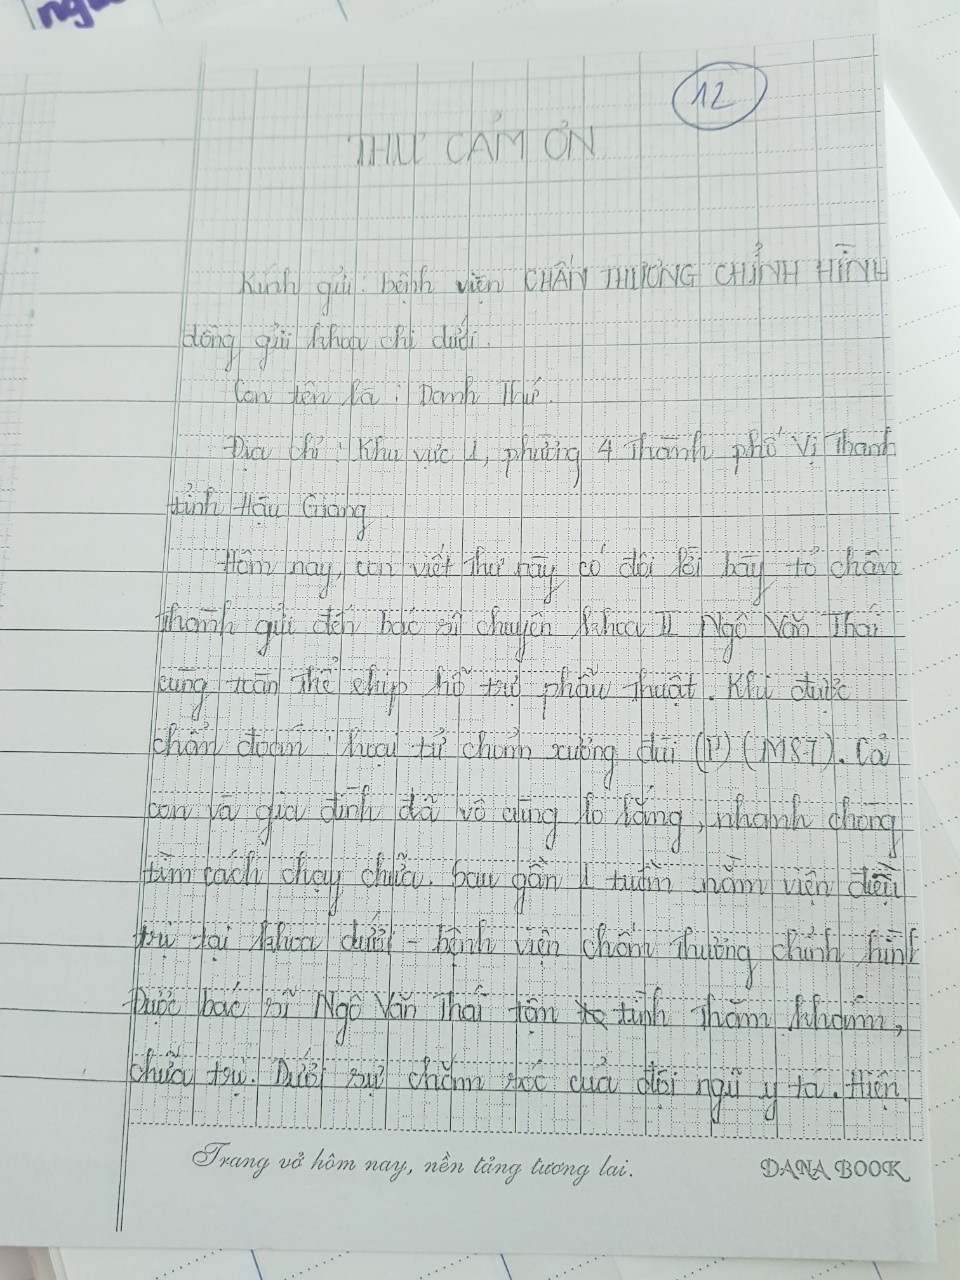 12
THƯ CẢM ƠN
Kính gửi: bệnh viện CHẤN THƯƠNG CHỈNH HÌNH
đồng gửi khoa chi dưới.
Con tên là: Danh Thứ.
Địa chỉ: Khu vực 1, phường 4 Thành phố Vị Thanh
tỉnh Hậu Giang
Hôm nay, con viết thư này có đôi lời bày tỏ chân
thành gửi đến bác sĩ chuyên khoa II Ngô Văn Thái
cùng toàn thể ekip hỗ trợ phẫu thuật. Khi được
chẩn đoán: hoại tử chỏm xương đùi (P) (M87). Cả
con và gia đình đã vô cùng lo lắng, nhanh chóng
tìm cách chạy chữa. Sau gần 1 tuần nằm viện điều
trị tại khoa dưới - bệnh viện chấn thương chỉnh hình
Được bác sĩ Ngô Văn Thái tận tình thăm khám,
chữa trị. Dưới sự chăm sóc của đội ngũ y tá. Hiện
Trang vở hôm nay, nền tảng tương lai.
DANA BOOK